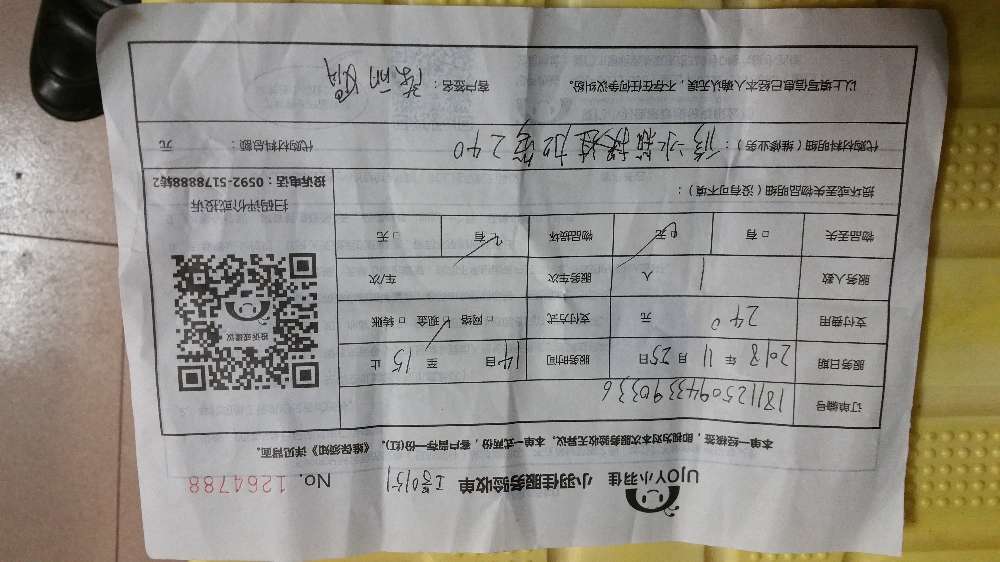 UJOY小羽佳 小羽佳服务验收单 No. 1264788
本单一经核签，即视为对本次服务验收无异议，本单一式两份，客户留存一份(红)。《维保须知》详见背面。
订单编号 18112509433390336
服务日期 2018 年 11 月 25 日 服务时间 14 自 至 15 止
支付费用 240 元 支付方式 □ 网络 □ 现金 □ 转账
服务人数 1 人 服务车次 车/次
物品丢失 □ 有 □ 无 物品损坏 □ 有 □ 无
损坏或丢失物品明细（没有可不填）：
投诉或建议
扫码评价或投诉
投诉电话：0592-5178888转2
代购材料明细（维修业务）： 修水箱 加管240 代购材料总额： 元
以上填写信息已经本人确认无误，不存在任何争议纠纷。 客户签名：